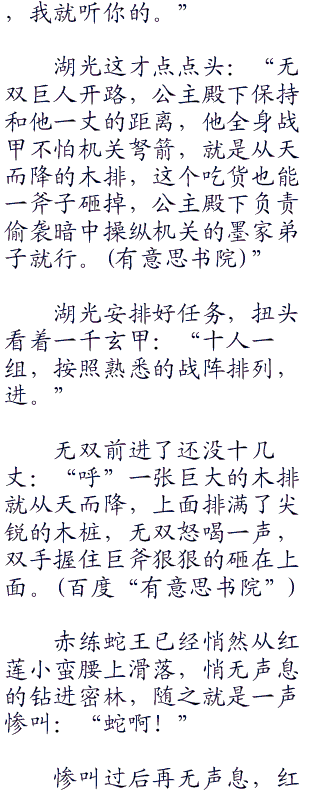 ，我就听你的。”
湖光这才点点头：“无
双巨人开路，公主殿下保持
和他一丈的距离，他全身战
甲不怕机关弩箭，就是从天
而降的木排，这个吃货也能
一斧子砸掉，公主殿下负责
偷袭暗中操纵机关的墨家弟
子就行。(有意思书院)”
湖光安排好任务，扭头
看着一千玄甲：“十人一
组，按照熟悉的战阵排列，
进。”
无双前进了还没十几
丈：“呼”一张巨大的木排
就从天而降，上面排满了尖
锐的木桩，无双怒喝一声，
双手握住巨斧狠狠的砸在上
面。(百度“有意思书院”)
赤练蛇王已经悄然从红
莲小蛮腰上滑落，悄无声息
的钻进密林，随之就是一声
惨叫：“蛇啊！”
惨叫过后再无声息，红